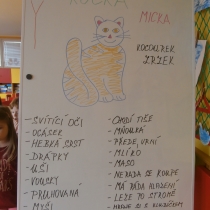 KOČKA
MICKA
KOCOUREK
ZRZEK
- SVÍTÍCÍ OČI
- OCÁSEK
- HEBKÁ SRST
- DRÁPKY
- UŠI
- VOUSKY
- PRUHOVANÁ
- MYŠI
- CHODÍ TIŠE
- MŇOUKÁ
- PŘEDE, VRNÍ
- MLÍKO
- MASO
- NERADA SE KOUPE
- MÁ RÁDA HLAZENÍ
- LEZE PO STROMĚ
- HRAJE SI S KLUBÍČKEM